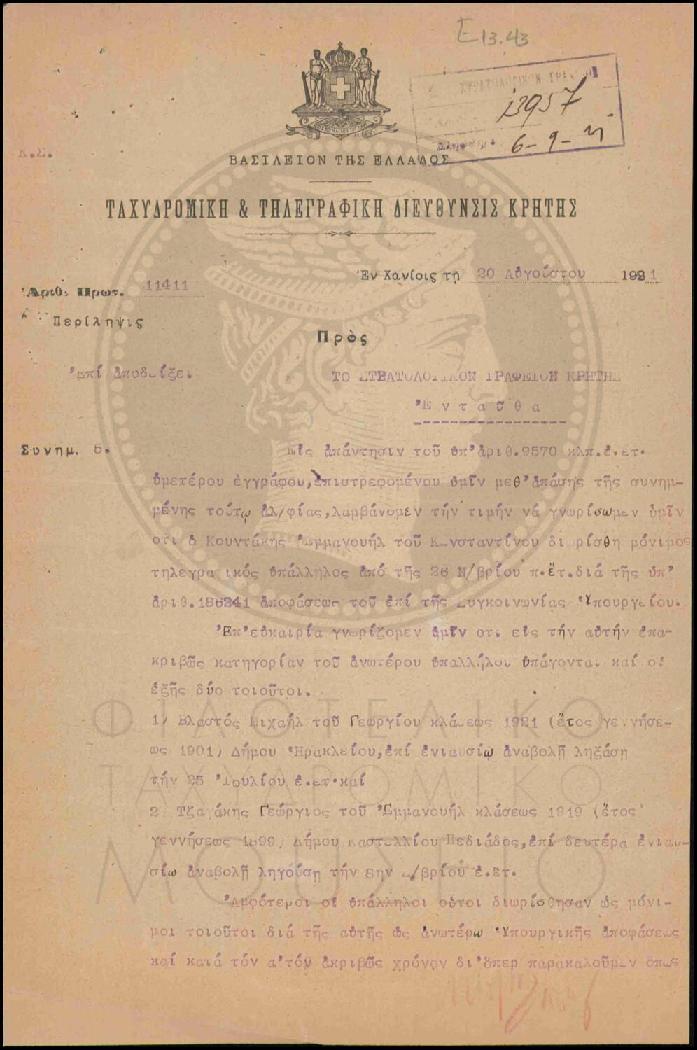 E 13.43
13957
6-9-21
Κ.Σ.
ΒΑΣΙΛΕΙΟΝ ΤΗΣ ΕΛΛΑΔΟΣ
ΤΑΧΥΔΡΟΜΙΚΗ & ΤΗΛΕΓΡΑΦΙΚΗ ΔΙΕΥΘΥΝΣΙΣ ΚΡΗΤΗΣ
Ἐν Χανίοις τῇ 20 Αὐγούστου 1921
Ἀριθ. Πρωτ. 11411
Περίληψις
Πρὸς
Ἐπί ἀποδείξει
ΤΟ ΣΤΡΑΤΟΛΟΓΙΚΟΝ ΓΡΑΦΕΙΟΝ ΚΡΗΤΗΣ
Ἐνταῦθα
Συνημ. 6.
Εἰς ἀπάντησιν τοῦ ὑπ' ἀριθ. 9570 κλπ. ἐ.ἔτ.
ὑμετέρου ἐγγράφου, ἐπιστρεφομένου ὑμῖν μεθ' ἁπάσης τῆς συνημ-
μένης τούτῳ ἀλ/φίας, λαμβάνομεν τήν τιμήν νά γνωρίσωμεν ὑμῖν
ὅτι ὁ Κουντάκης Ἐμμανουήλ τοῦ Κωνσταντίνου διωρίσθη μόνιμος
τηλεγραφικός ὑπάλληλος ἀπό τῆς 26 Ν/βρίου π.ἔτ. διά τῆς ὑπ'
ἀριθ. 186241 ἀποφάσεως τοῦ ἐπί τῆς Συγκοινωνίας Ὑπουργείου.
Ἐπ' εὐκαιρίᾳ γνωρίζομεν ὑμῖν ὅτι εἰς τήν αὐτήν ἐπα-
κριβῶς κατηγορίαν τοῦ ἀνωτέρου ὑπαλλήλου ὑπάγονται καί οἱ
ἑξῆς δύο τοιοῦτοι.
1) Βλαστός Μιχαήλ τοῦ Γεωργίου κλάσεως 1921 (ἔτος γεννήσε-
ως 1901) Δήμου Ἡρακλείου, ἐπί ἐνιαυσίῳ ἀναβολῇ ληξάσῃ
τήν 25 Ἰουλίου ἐ.ἔτ. καί
2) Τζαγάκης Γεώργιος τοῦ Ἐμμανουήλ κλάσεως 1919 (ἔτος
γεννήσεως 1899) Δήμου Καστελλίου Πεδιάδος, ἐπί δευτέρᾳ ἐνιαυ-
σίῳ ἀναβολῇ ληγούσῃ τήν 8ην /βρίου ἐ.ἔτ.
Ἀμφότεροι οἱ ὑπάλληλοι οὗτοι διωρίσθησαν ὡς μόνι-
μοι τοιοῦτοι διά τῆς αὐτῆς ὡς ἀνωτέρω Ὑπουργικῆς ἀποφάσεως
καί κατά τόν αὐτόν ἀκριβῶς χρόνον δι' ὅπερ παρακαλοῦμεν ὅπως
ΦΙΛΟΤΕΛΙΚΟ
ΤΑΧΥΔΡΟΜΙΚΟ
ΜΟΥΣΕΙΟ